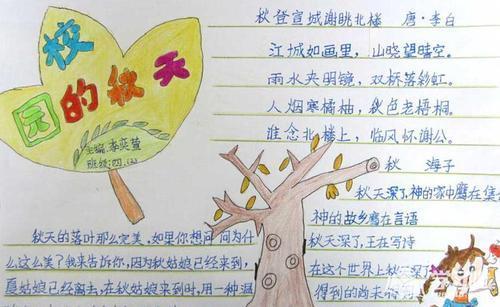 校园的秋天
主编:李奕萱
班级:四.(2)
秋登宣城谢眺北楼 唐·李白
江城如画里，山晓望晴空。
雨水夹明镜，双桥落彩虹。
人烟寒橘柚，秋色老梧桐。
谁念北楼上，临风怀谢公。
秋 海子
秋天深了,神的家中鹰在集
神的故乡鹰在言语
秋天深了,王在写诗
在这个世界上秋深了
得到的尚未得
秋天的落叶那么完美,如果你想问问为什
么这么美?我来告诉你,因为秋姑娘已经来到,
夏姑娘已经离去,在秋姑娘来到时,用一种温